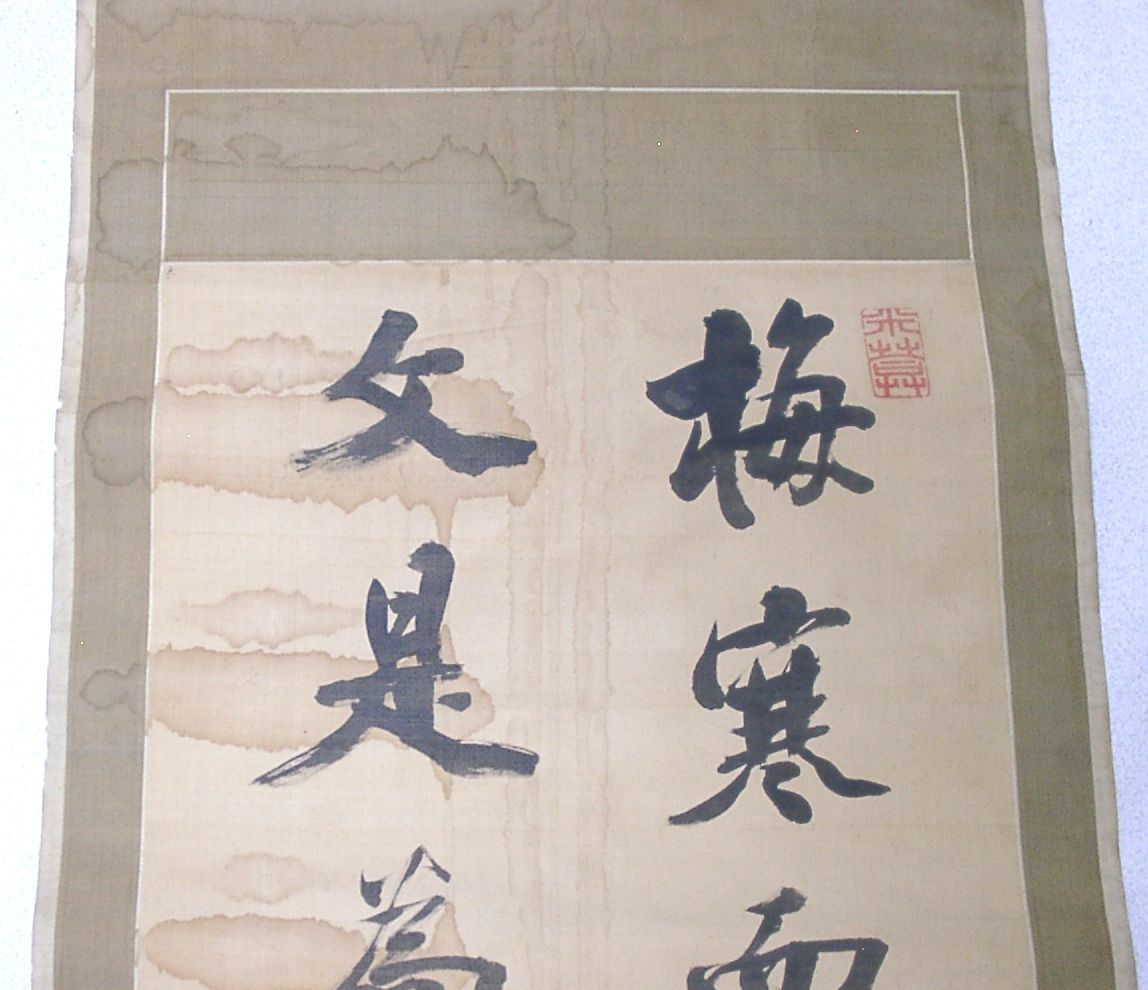 梅寒而
文是為